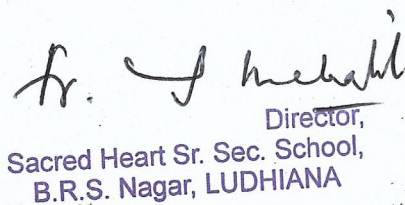 Fr.
Director,
Sacred Heart Sr. Sec. School,
B.R.S. Nagar, LUDHIANA